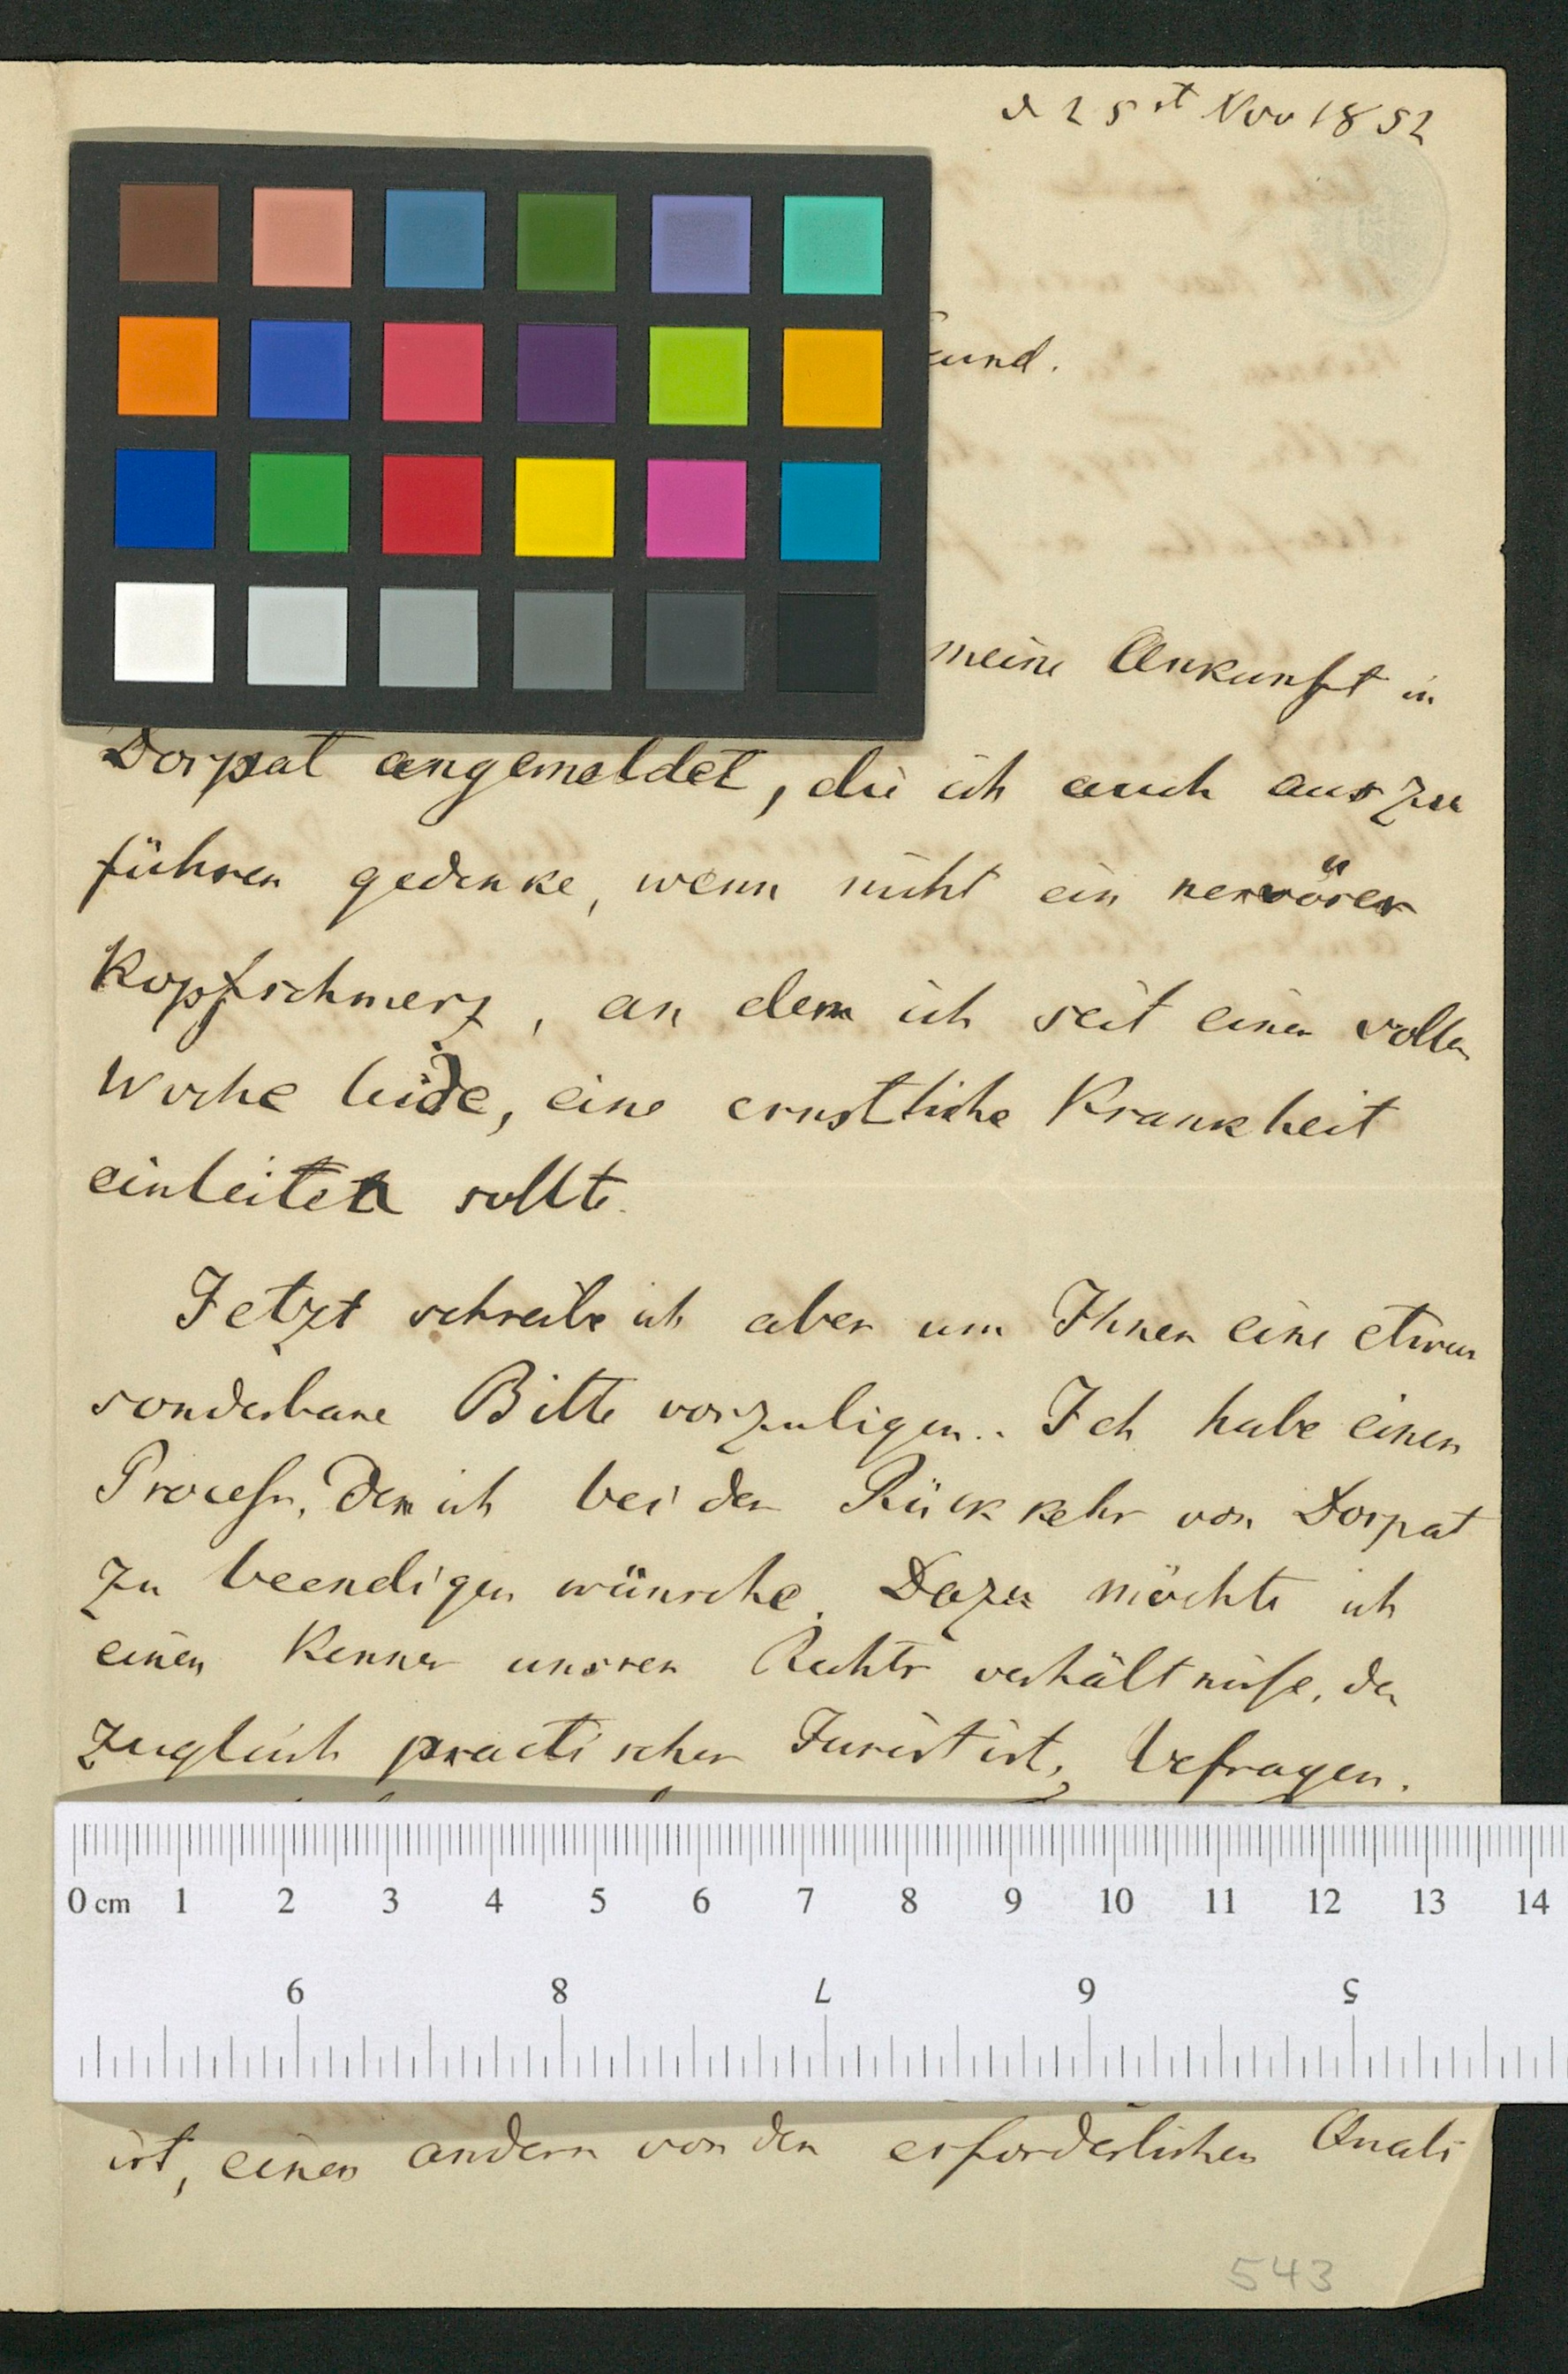 d 25st Nov 1852
eund.
meine Ankunft in
Dorpat angemeldet, die ich auch auszu
führen gedenke, wenn nicht ein nervöser
Kopfschmerz, an dem ich seit einer vollen
Woche leide, eine ernstliche Krankheit
einleiten sollte.
Jetzt schreibe ich aber um Ihnen eine etwas
sonderbare Bitte vorzulegen. Ich habe einen
Process, den ich bei der Rückkehr von Dorpat
zu beendigen wünsche. Dazu möchte ich
einen Kenner unsrer Rechtsverhältnisse, der
zugleich practischer Jurist ist, befragen.
0 cm 1 2 3 4 5 6 7 8 9 10 11 12 13 14
9 8 7 6 5
ist, einen andern von den erforderlichen Quali
543